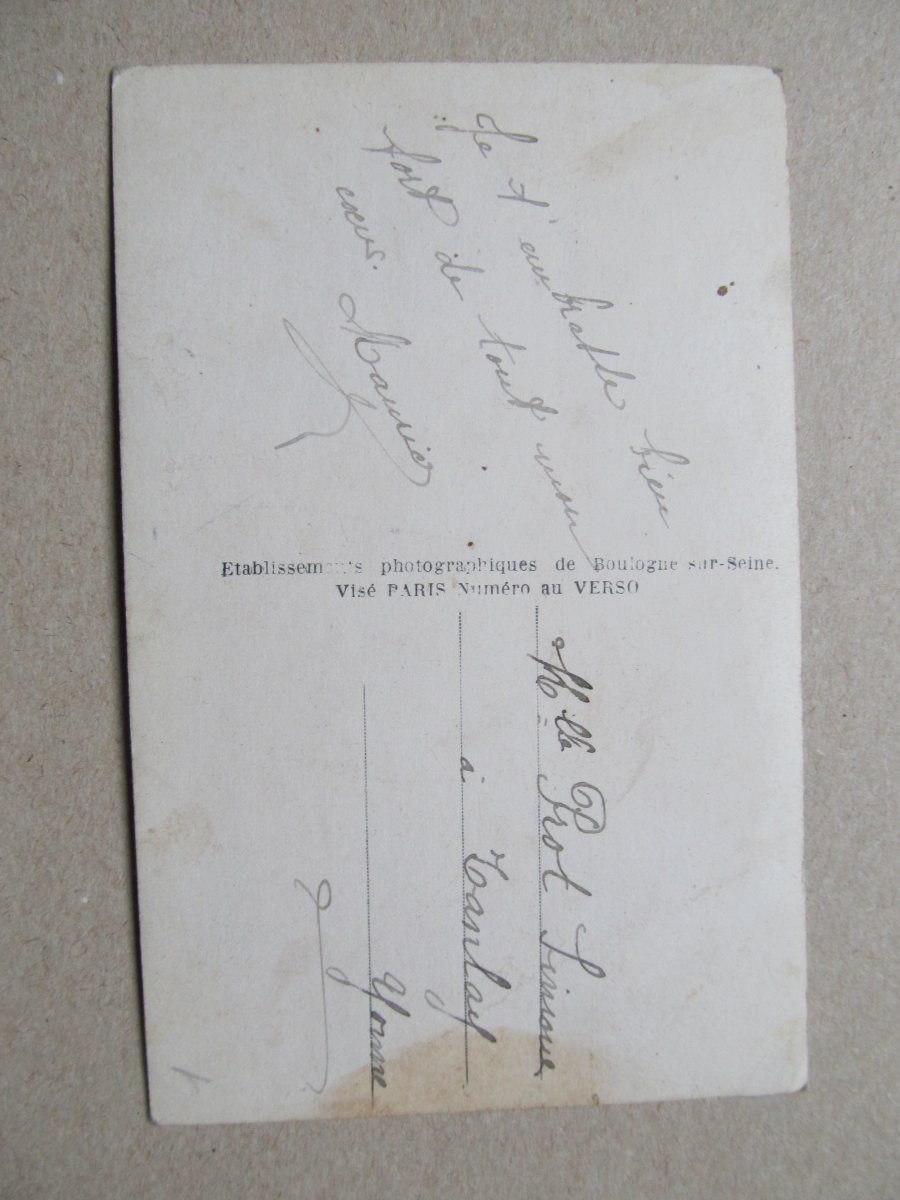 Je t'embrasse bien
fort de tout mon
cœur. Maurice
Etablissements photographiques de Boulogne-sur-Seine.
Visé PARIS Numéro au VERSO
Mlle Prot Simone
à Tanlay
Yonne